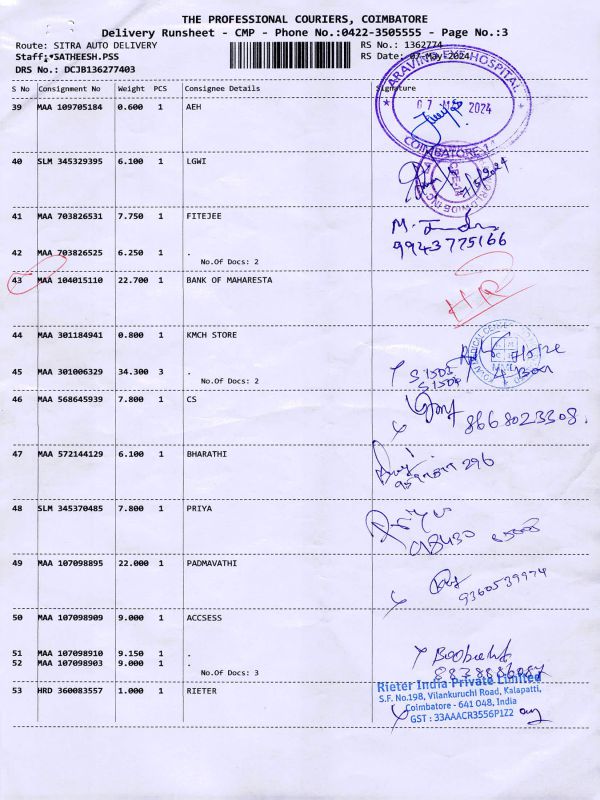 THE PROFESSIONAL COURIERS, COIMBATORE
Delivery Runsheet - CMP - Phone No.:0422-3505555 - Page No.:3
Route: SITRA AUTO DELIVERY RS No.: 1362774
Staff:*SATHEESH.PSS RS Date: 07-May-2024
DRS No.: DCJB136277403
S No Consignment No Weight PCS Consignee Details Signature
ARAVIND EYE HOSPITAL
39 MAA 109705184 0.600 1 AEH
07 MAY 2024
COIMBATORE-14
40 SLM 345329395 6.100 1 LGWI
7/5/2024
41 MAA 703826531 7.750 1 FITEJEE
M.
42 MAA 703826525 6.250 1 .
9943775166
No.Of Docs: 2
43 MAA 104015110 22.700 1 BANK OF MAHARESTA
44 MAA 301184941 0.800 1 KMCH STORE
45 MAA 301006329 34.300 3 .
S1503
S1504
4 Box
No.Of Docs: 2
46 MAA 568645939 7.800 1 CS
8668023308.
47 MAA 572144129 6.100 1 BHARATHI
48 SLM 345370485 7.800 1 PRIYA
Priya
49 MAA 107098895 22.000 1 PADMAVATHI
9360539974
50 MAA 107098909 9.000 1 ACCSESS
51 MAA 107098910 9.150 1 .
52 MAA 107098903 9.000 1 .
No.Of Docs: 3
53 HRD 360083557 1.000 1 RIETER
Rieter India Private Limited
S.F. No.198, Vilankuruchi Road, Kalapatti,
Coimbatore - 641 048, India
GST : 33AAACR3556P1Z2